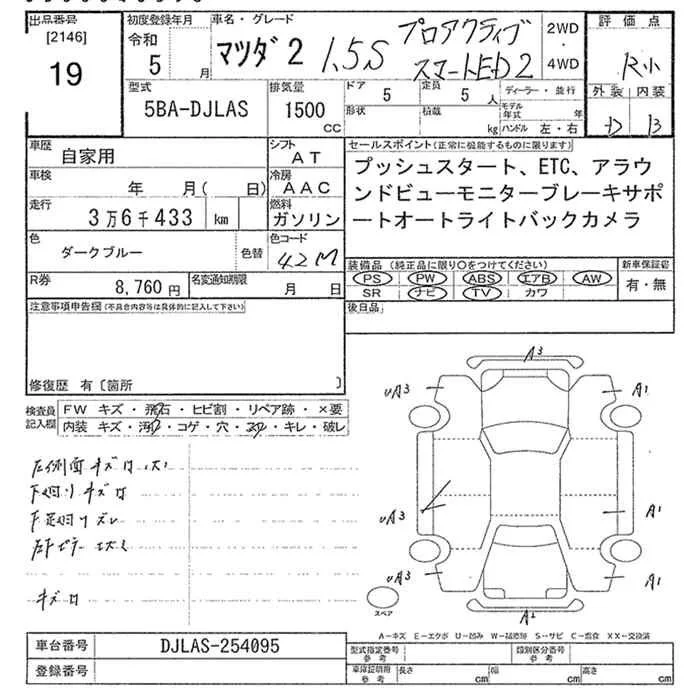 出品番号
[2146]
19
初度登録年月
令和
5 月
車名・グレード
マツダ2 1.5S プロアクティブ
スマートED2
2WD
・
4WD
評価点
R小
外装 内装
D B
型式
5BA-DJLAS
排気量
1500
CC
ドア
5
定員
5 人
ディーラー・並行
形状
積載
kg
モデル年式 年
ハンドル 左・右
車歴
自家用
シフト
AT
車検
年 月( 日)
冷房
AAC
走行
3万6千433 km
燃料
ガソリン
色
ダークブルー
色替
色コード
42M
R券
8,760円
名変通知期限
月 日
セールスポイント(正常に機能するものに限ります)
プッシュスタート、ETC、アラウ
ンドビューモニターブレーキサポ
ートオートライトバックカメラ
装備品 (純正品に限り○をつけてください)
PS PW ABS エアB AW
SR ナビ TV カワ
新車保証書
有・無
後日品
注意事項申告欄(不具合内容等は具体的に記入して下さい)
修復歴 有〔箇所 〕
検査員
記入欄
FW キズ・飛石・ヒビ割・リペア跡・×要
内装 キズ・汚・コゲ・穴・スレ・キレ・破レ
左側面キズ
下廻りキズ
キズ
A3
UA3
A1
UA3
A1
UA3
A1
スペア
A-キズ E-エクボ U-凹み W-補修跡 S-サビ C-腐食 XX-交換済
車台番号
DJLAS-254095
登録番号
型式指定番号
参考
類別区分番号
参考
車庫証明用
参考
長さ cm
幅 cm
高さ cm